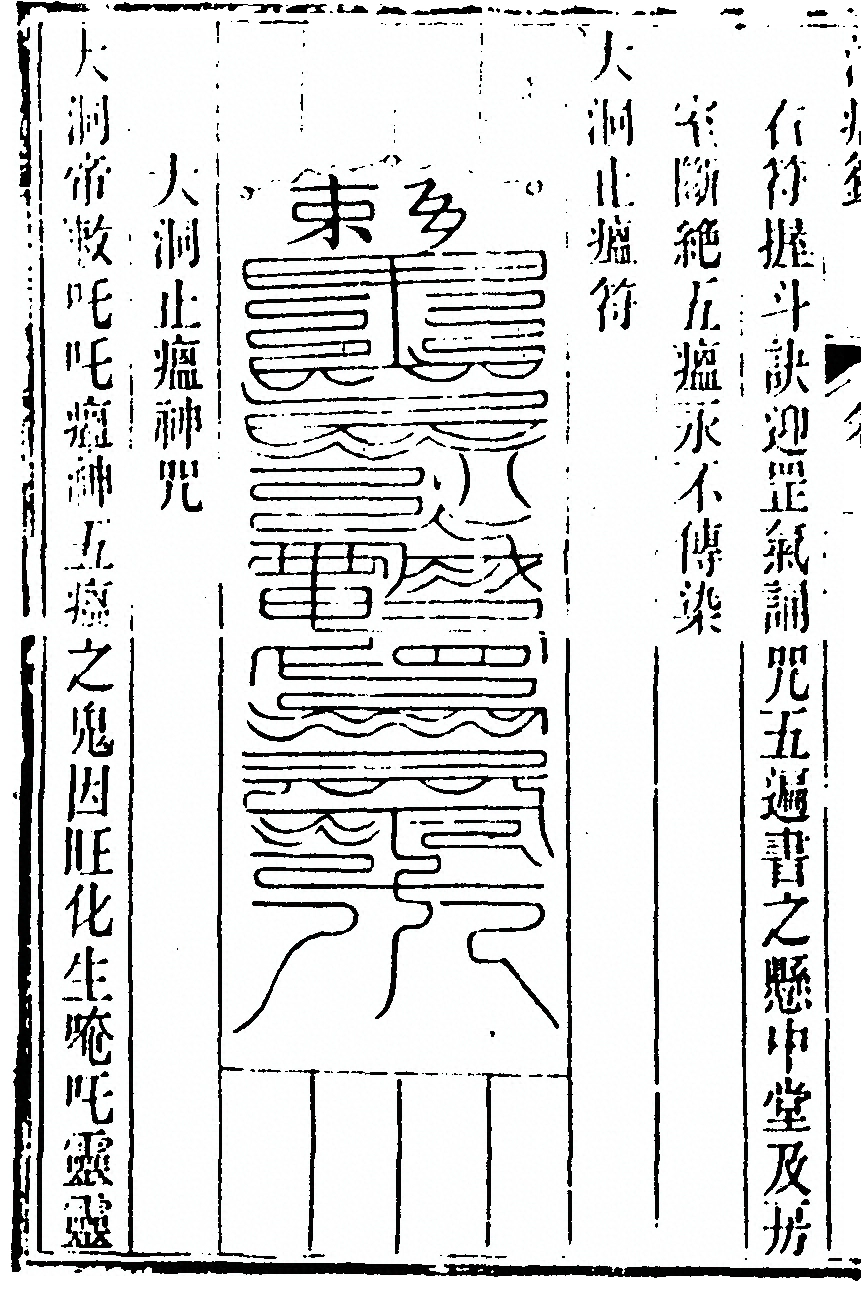 右符握斗訣迎罡氣誦咒五遍書之懸中堂及房
室斷絶五瘟永不傳染
大洞止瘟符
大洞止瘟神咒
大洞帝敕吒吒瘟神五瘟之鬼因旺化生唵吒靈靈